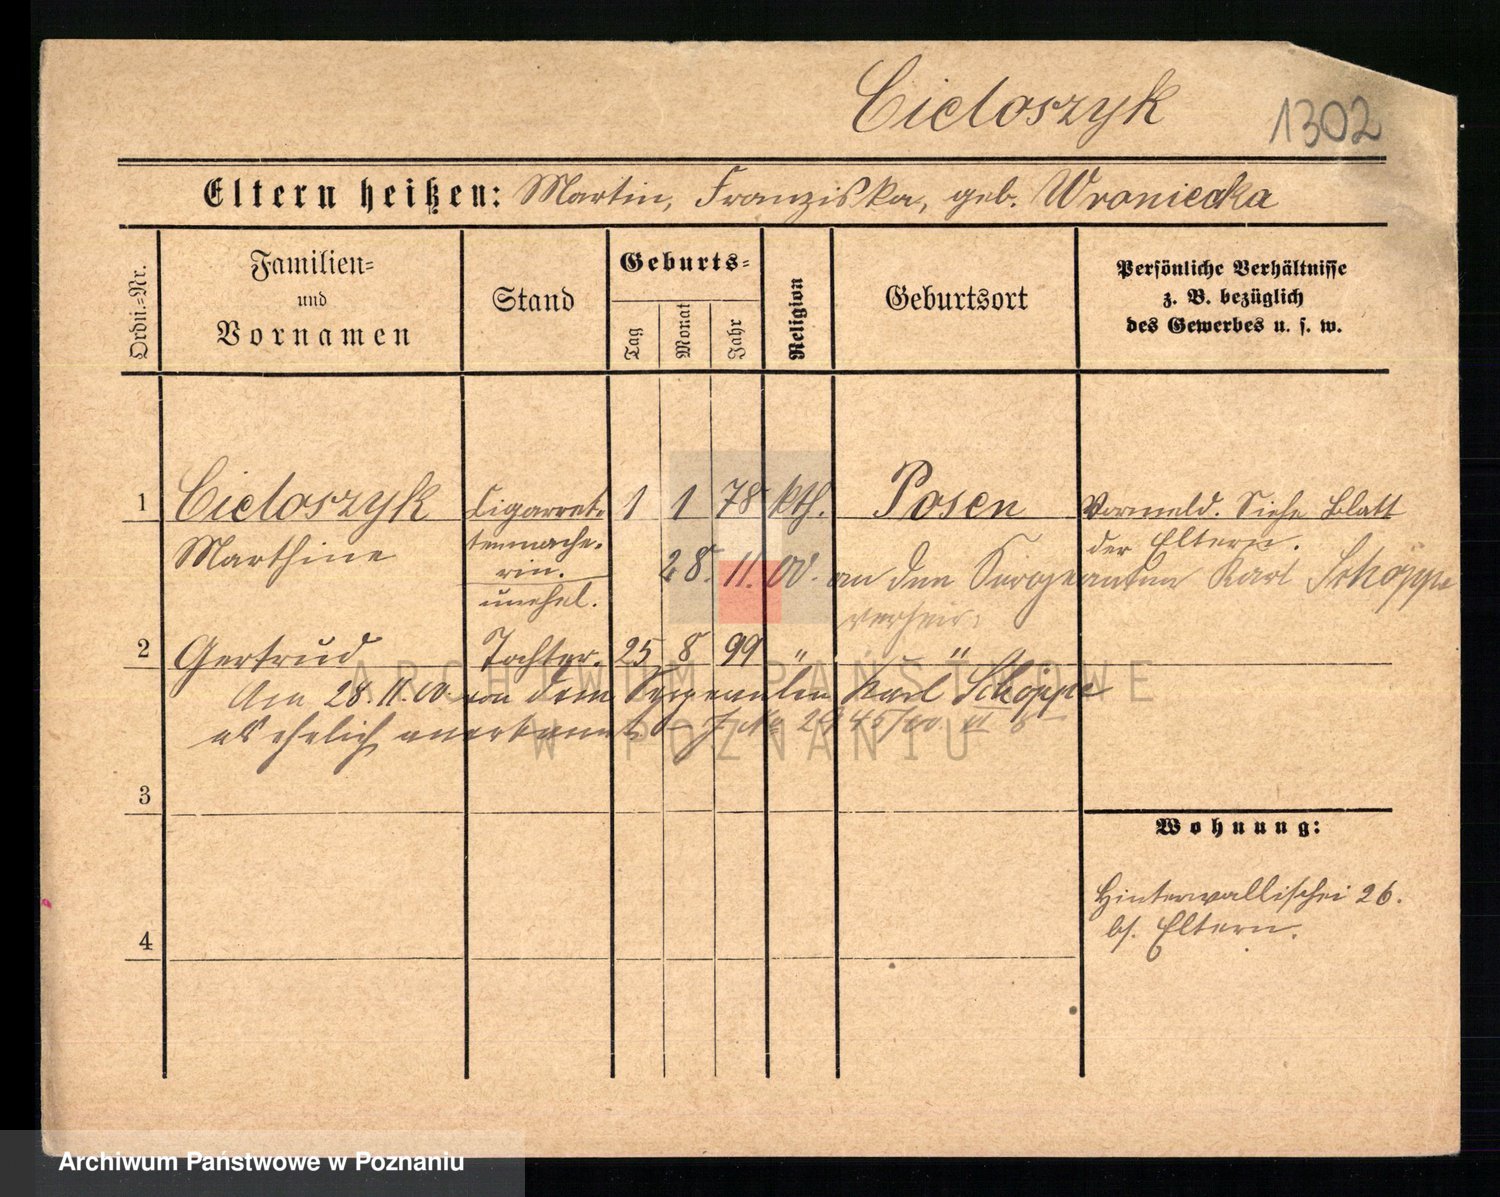 Cieloszyk 1302
Eltern heißen: Martin, Franziska, geb. Wroniecka
Ordn.-Nr.
Familien-
und
Vornamen
Stand
Geburts-
Tag
Monat
Jahr
Religion
Geburtsort
Persönliche Verhältnisse
z. B. bezüglich
des Gewerbes u. s. w.
1 Cieloszyk Cigarret- 1 1 78 kth. Posen Vormeld. Siehe Blatt
Marthine tenmache- der Eltern.
rin. 28. 11. 00. an den Sergeanten Karl Schöppe
unehel. verheir.
2 Gertrud Tochter. 25 8 99 " "
Am 28.11.00 von dem Sergeanten Karl Schöppe
als ehelich anerkannt
3
Wohnung:
Hinterwallischei 26.
bs. Eltern.
4
ARCHIWUM PAŃSTWOWE
W POZNANIU
Archiwum Państwowe w Poznaniu